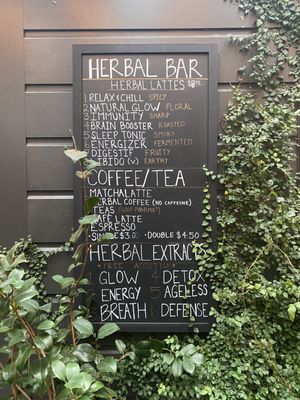 HERBAL BAR
HERBAL LATTES
1 RELAX & CHILL SPICY
2 NATURAL GLOW FLORAL
3 IMMUNITY SHARP
4 BRAIN BOOSTER ROASTED
5 SLEEP TONIC SMOKY
6 ENERGIZER FERMENTED
7 DIGESTIF FRUITY
LIBIDO (V) EARTHY
COFFEE/TEA
MATCHA LATTE
HERBAL COFFEE (NO CAFFEINE)
TEAS
CAFE LATTE
ESPRESSO
SINGLE $3.0 • DOUBLE $4.50
HERBAL EXTRACTS
GLOW 4 DETOX
ENERGY 5 AGELESS
BREATH 6 DEFENSE